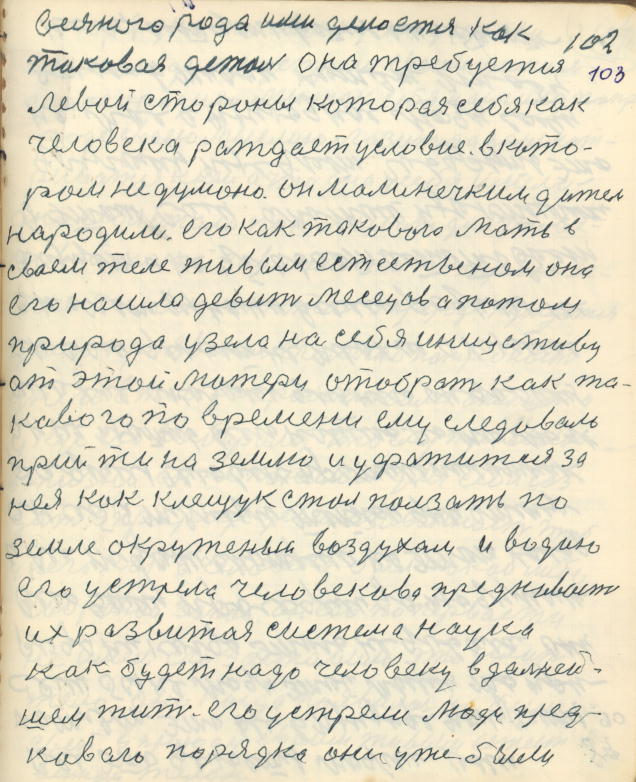 Всяного рода или делается как 102
таковая детям она требуется 103
левой стороны которая себя как
человека раждает условие. в като-
ром недумоно. он малинечким дител
народили. его как такового мать в
сваем теле живым естественом она
его насила девит месецов а патом
природа узела на себя инициативу
от этой матери отобрат как та-
кавого по времени ему следоваль
прийти на землю и ухратится за
нея как клещук стал ползать по
земле окруженый воздухам и водию
его устрела человекова
их развитая система наука
как будет надо человеку в далней-
шем жит. его устрели люди пред-
каваго порядка они уже были